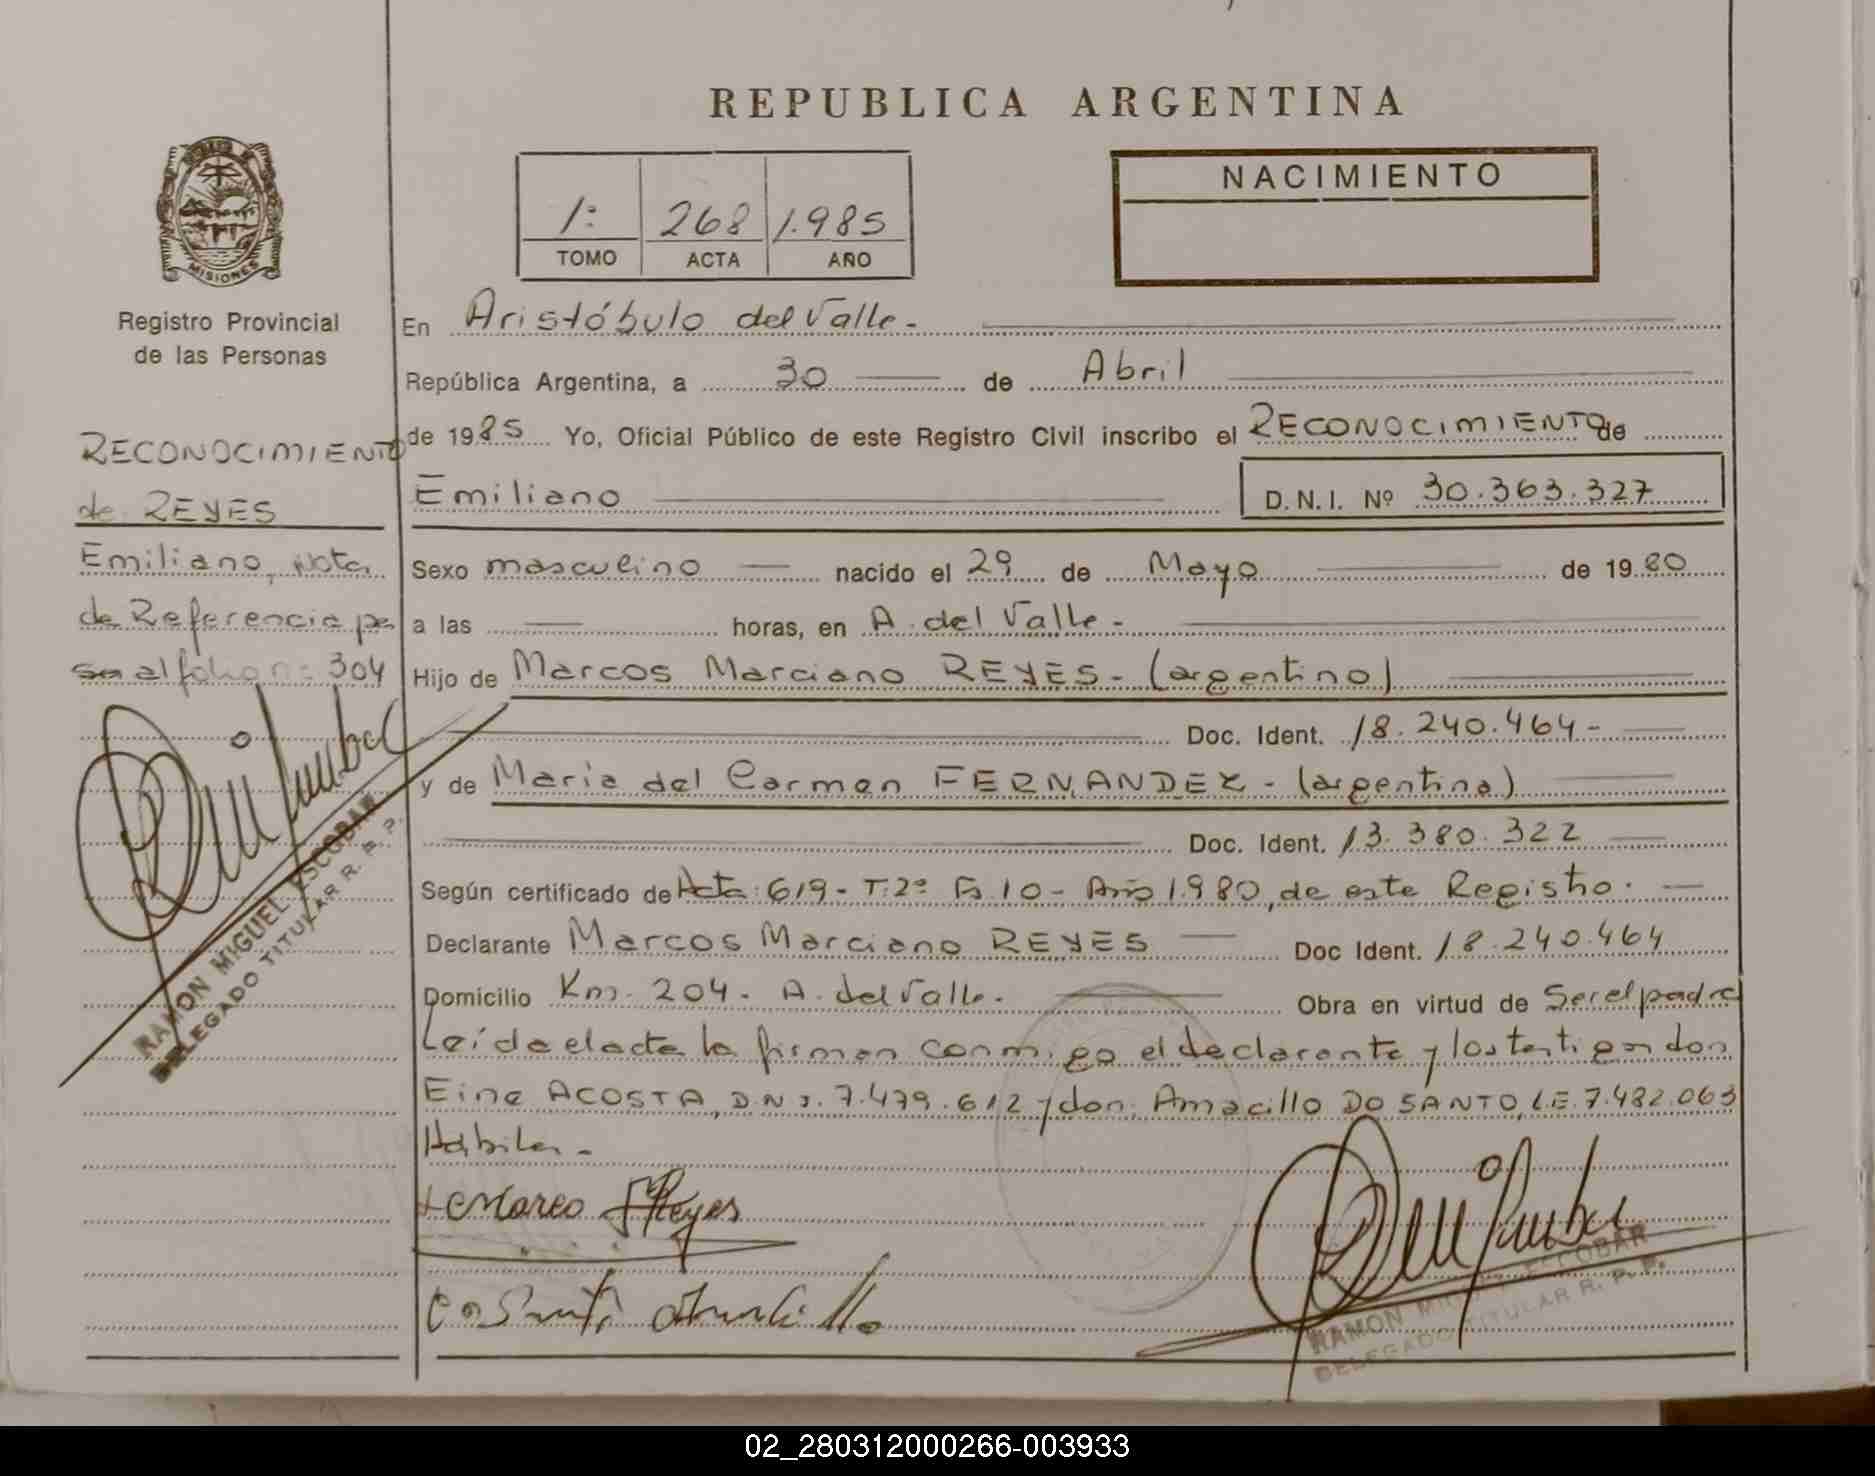 REPUBLICA ARGENTINA
NACIMIENTO
1º 268 1.985
TOMO ACTA AÑO
MISIONES
Registro Provincial
de las Personas
RECONOCIMIENTO
de REYES
Emiliano, Nota
de Referencia pa
sa al folio nº 304
RAMON MIGUEL ESCOBAR
DELEGADO TITULAR R. P. P.
En Aristóbulo del Valle.
República Argentina, a 30 de Abril
de 1985 Yo, Oficial Público de este Registro Civil inscribo el RECONOCIMIENTO de
Emiliano D.N.I. Nº 30.363.327
Sexo masculino nacido el 29 de Mayo de 1980
a las horas, en A. del Valle.
Hijo de Marcos Marciano REYES - (argentino)
Doc. Ident. 18.240.464-
y de Maria del Carmen FERNANDEZ - (argentina)
Doc. Ident. 13.380.322
Según certificado de Acta: 619 - T: 2º Fs. 10 - Año 1.980, de este Registro.
Declarante Marcos Marciano REYES Doc Ident. 18.240.464
Domicilio Km. 204. A. del Valle. Obra en virtud de Ser el padre
Leída el acta la firman conmigo el declarante y los testigos don
DNI. 7.479.612 y don DO SANTO, L.E. 7.482.063
ACOSTA,
Habiles.
Reyes
RAMON MIGUEL ESCOBAR
DELEGADO TITULAR R. P. P.
02_280312000266-003933